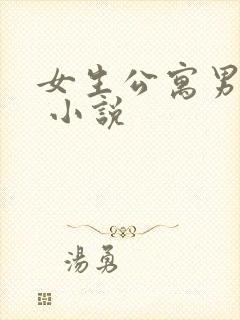 女生公寓男
小說
湯勇